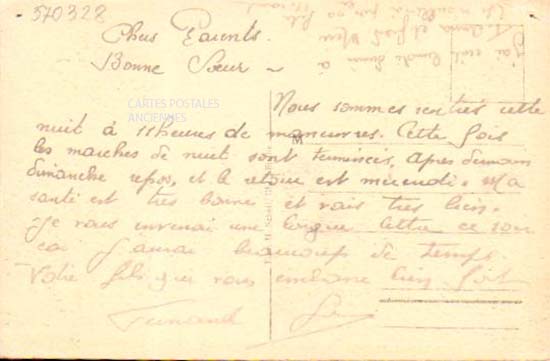 570328
Chers Parents.
Bonne Soeur ~
J'ai écrit lundi à
CARTES POSTALES
ANCIENNES
Nous sommes rentrés cette
nuit à 11 heures de manœuvres. Cette fois
M
les marches de nuit sont terminées, après demain
dimanche repos, et le retour est mercredi. Ma
santé est très bonne et vais très bien.
Je vous enverrai une longue lettre ce soir
car j'aurai beaucoup de temps.
Votre fils qui vous embrasse bien fort
Fernand